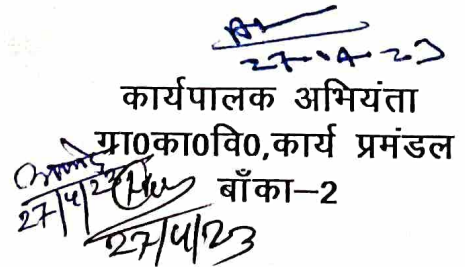 27-04-23
कार्यपालक अभियंता
ग्रा0का0वि0,कार्य प्रमंडल
बाँका–2
27/4/23
27/4/23